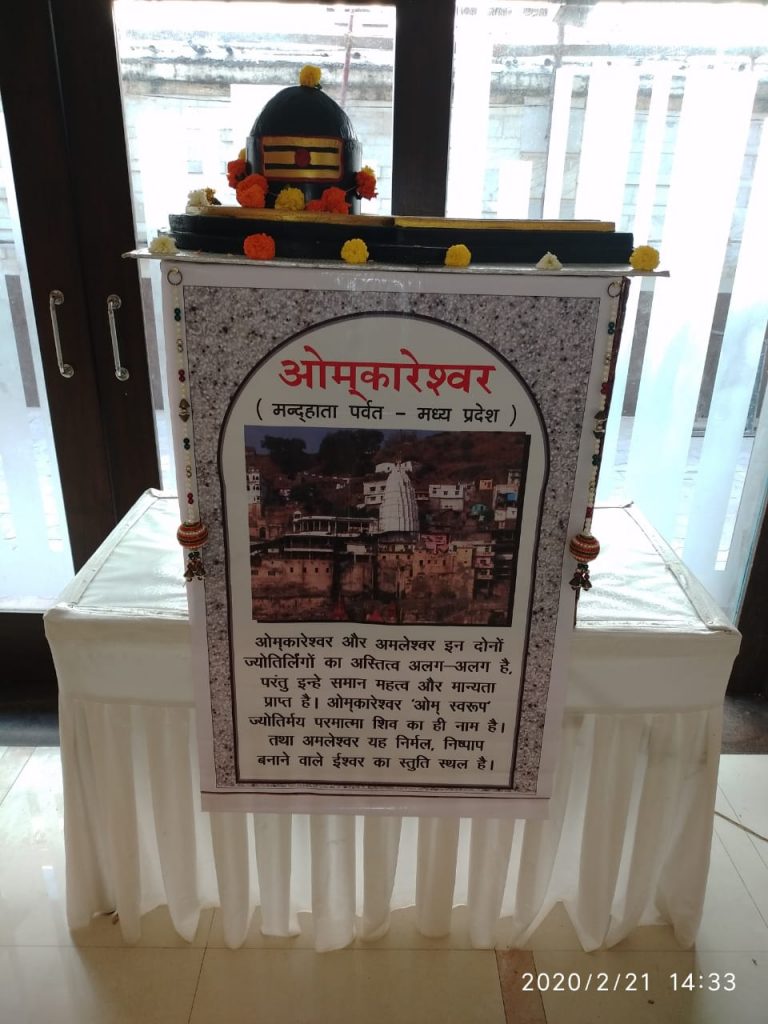 ओम्कारेश्वर
( मन्द्हाता पर्वत – मध्य प्रदेश )
ओम्कारेश्वर और अमलेश्वर इन दोनों
ज्योतिर्लिंगों का अस्तित्व अलग–अलग है,
परंतु इन्हे समान महत्व और मान्यता
प्राप्त है। ओम्कारेश्वर 'ओम् स्वरूप'
ज्योतिर्मय परमात्मा शिव का ही नाम है।
तथा अमलेश्वर यह निर्मल, निष्पाप
बनाने वाले ईश्वर का स्तुति स्थल है।
2020/2/21 14:33